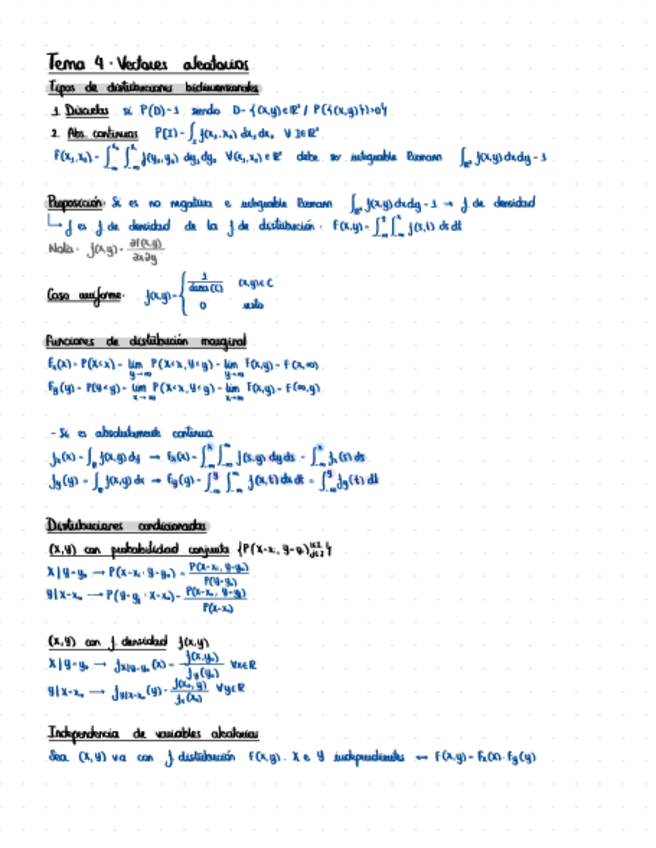 Tema 4. Vectores aleatorios
Tipos de distribuciones bidimensionales
1. Discretas si P(D)=1 siendo D={(x,y)∈ℝ² / P{(x,y)}>0}
2. Abs. continuas P(I)=∫_I f(x₁,x₂) dx₁dx₂ ∀ I∈ℝ²
F(x₁,x₂)=∫_{-∞}^{x₁}∫_{-∞}^{x₂} f(y₁,y₂) dy₁dy₂ ∀(x₁,x₂)∈ℝ² debe ser integrable Riemann ∫_{ℝ²} f(x,y)dxdy=1
Proposición: Si es no negativa e integrable Riemann ∫_{ℝ²} f(x,y)dxdy=1 → f de densidad
↳ f es f de densidad de la f de distribución. F(x,y)=∫_{-∞}^{x}∫_{-∞}^{y} f(s,t) dsdt
Nota: f(x,y)=∂F(x,y)/∂x∂y
Caso uniforme: f(x,y)={ 1/área(C) (x,y)∈C
0 resto
Funciones de distribución marginal
Fx(x)=P(X≤x)=lim_{y→∞} P(X≤x, Y≤y)=lim_{y→∞} F(x,y)=F(x,∞)
Fy(y)=P(Y≤y)=lim_{x→∞} P(X≤x, Y≤y)=lim_{x→∞} F(x,y)=F(∞,y)
- Si es absolutamente continua
fx(x)=∫_ℝ f(x,y)dy → Fx(x)=∫_{-∞}^{x}∫_{-∞}^{∞} f(s,y) dyds = ∫_{-∞}^{x} fx(s) ds
fy(y)=∫_ℝ f(x,y)dx → Fy(y)=∫_{-∞}^{y}∫_{-∞}^{∞} f(x,t) dxdt = ∫_{-∞}^{y} fy(t) dt
Distribuciones condicionadas
(X,Y) con probabilidad conjunta {P(X=xᵢ, Y=yⱼ)}_{i∈I j∈J}
X|Y=y₀ → P(X=xᵢ | Y=y₀)=P(X=xᵢ, Y=y₀)/P(Y=y₀)
Y|X=x₀ → P(Y=yⱼ | X=x₀)=P(X=x₀, Y=yⱼ)/P(X=x₀)
(X,Y) con f densidad f(x,y)
X|Y=y₀ → f_{X|Y=y₀}(x)=f(x,y₀)/fy(y₀) ∀x∈ℝ
Y|X=x₀ → f_{Y|X=x₀}(y)=f(x₀,y)/fx(x₀) ∀y∈ℝ
Independencia de variables aleatorias
Sea (X,Y) va con f distribución F(x,y). X e Y independientes ↔ F(x,y)=Fx(x)·Fy(y)